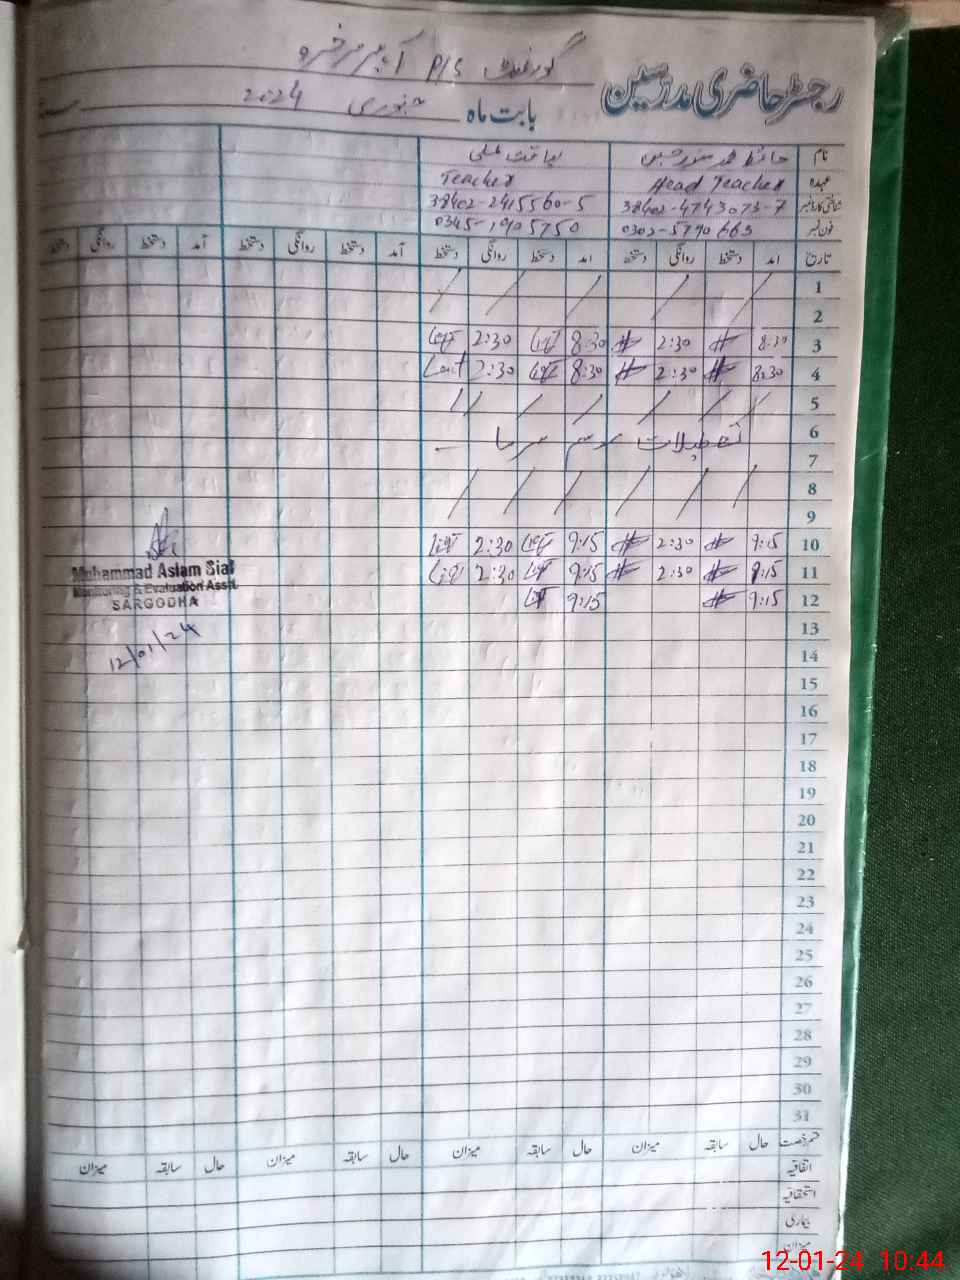 رجسٹر حاضری مدرسین
گورنمنٹ P/S
بابت ماہ جنوری 2024
نام
لیاقت علی
عہدہ Head Teacher Teacher
شناختی کارڈ نمبر 38402-4743073-7 38402-2415560-5
فون نمبر 0302-5790663 0345-1905750
تاریخ آمد دستخط روانگی دستخط آمد دستخط روانگی دستخط آمد دستخط روانگی دستخط آمد دستخط روانگی دستخط
1
2
3 8:30 2:30 8:30 2:30
4 8:30 2:30 8:30 2:30
5
6 تعطیلات موسم سرما
7
8
9
10 9:15 2:30 9:15 2:30
11 9:15 2:30 9:15 2:30
12 9:15 9:15
13
14
15
16
17
18
19
20
21
22
23
24
25
26
27
28
29
30
31
Muhammad Aslam Sial
Monitoring & Evaluation Asstt.
SARGODHA
12/01/24
قسم رخصت حال سابقہ میزان حال سابقہ میزان حال سابقہ میزان حال سابقہ میزان
اتفاقیہ
استحقاقیہ
بیماری
میزان
12-01-24 10:44